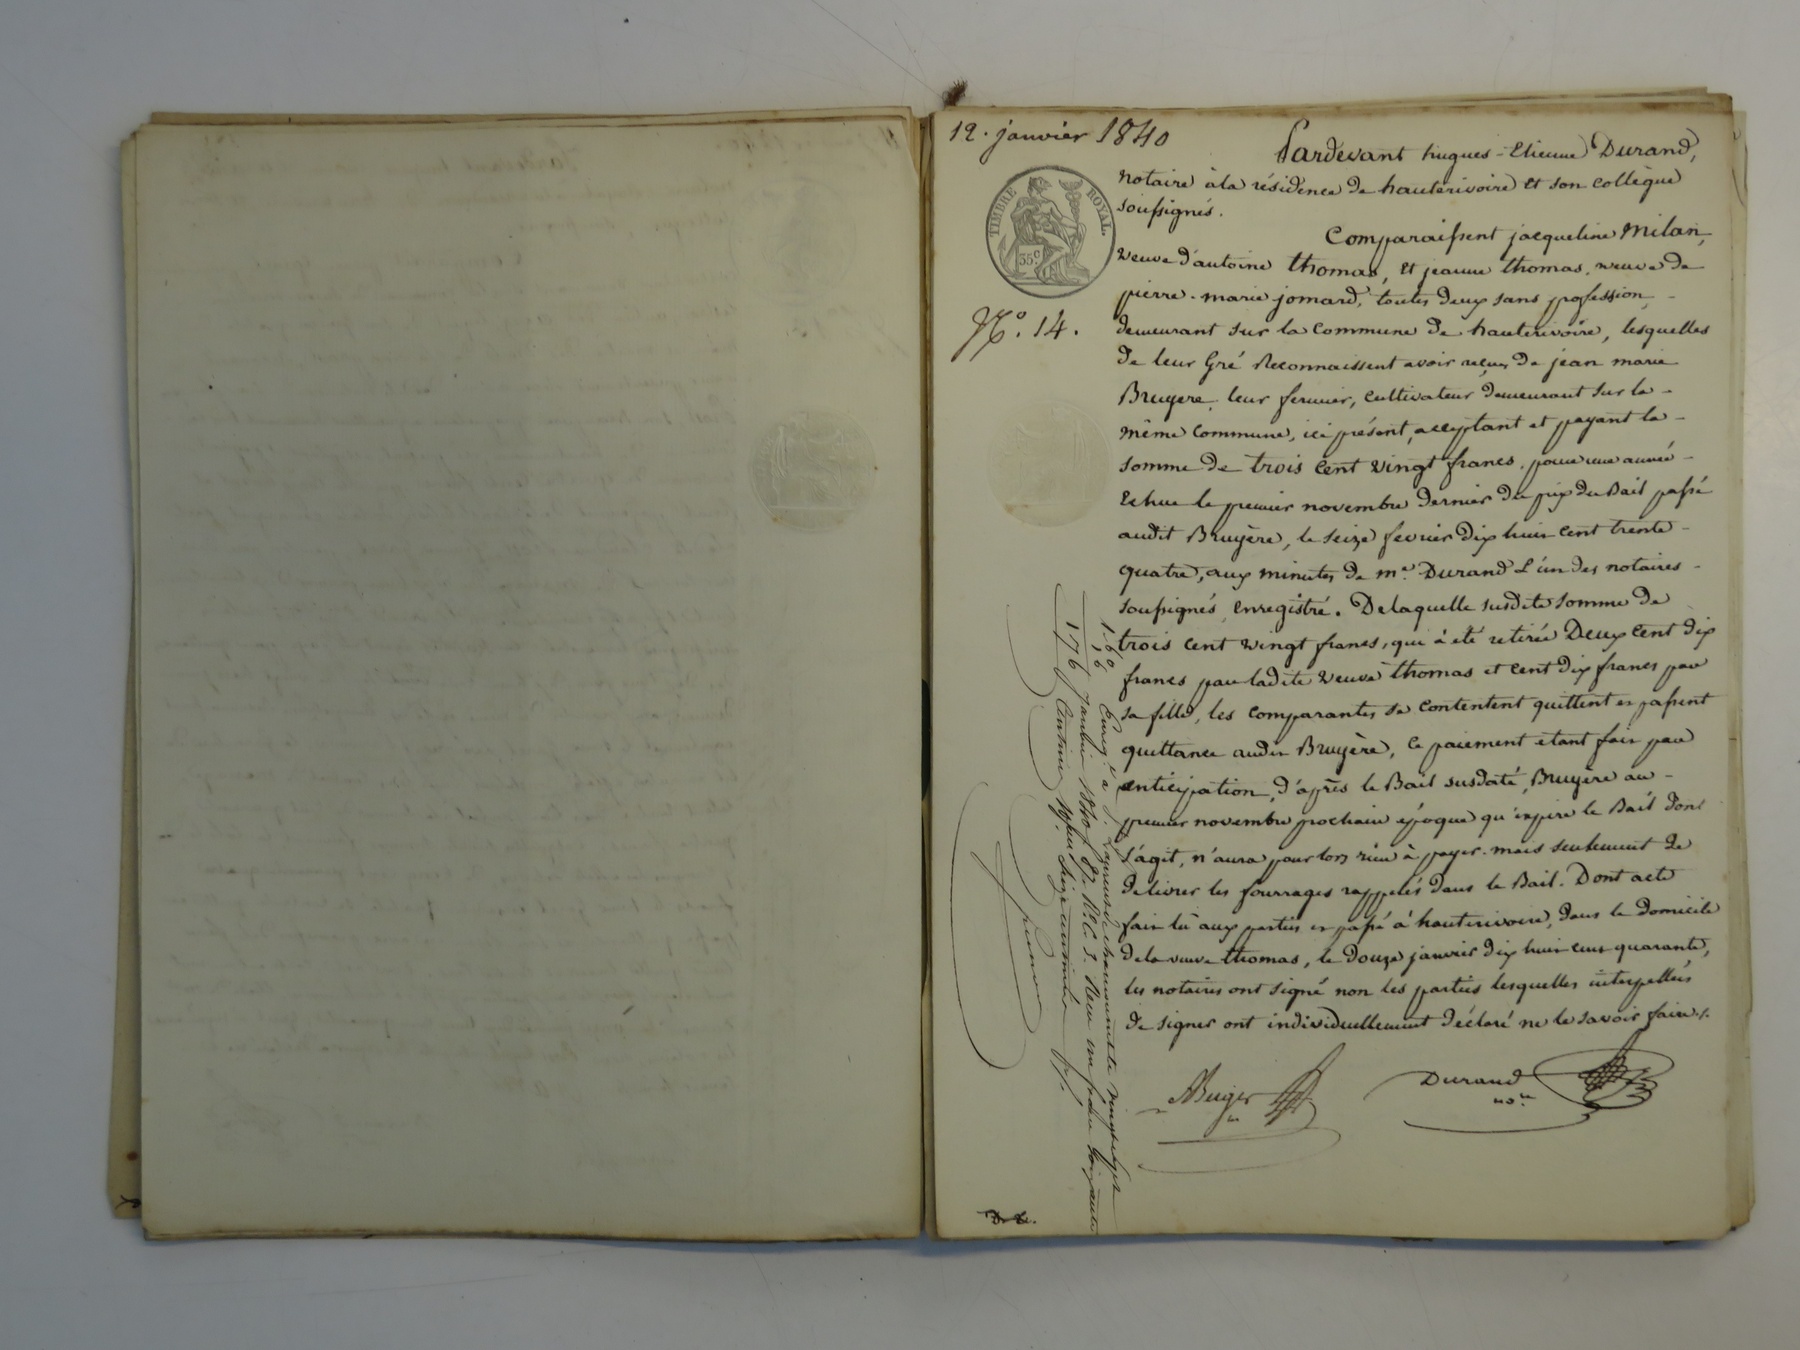 12. janvier 1840
TIMBRE ROYAL.
35c
No. 14.
Pardevant hugues-Etienne Durand,
notaire à la résidence de hauterivoire et son collègue
soussignés.
Comparaissent jacqueline Milan,
veuve d'antoine thomas, et jeanne thomas, veuve de
pierre-marie jomard, toutes deux sans profession,
demeurant sur la commune de hauterivoire, lesquelles
de leur Gré Reconnaissent avoir reçues de jean marie
Bruyere, leur fermier, cultivateur demeurant sur la
même commune, ici présent, acceptant et payant la
somme de trois cent vingt francs, pour une année
Echue le premier novembre dernier du prix du Bail passé
audit Bruyère, le seize fevrier dix huit cent trente
quatre, aux minutes de me. Durand L'un des notaires
soussignés, enregistré. De laquelle susdite somme de
trois cent vingt francs, qui à été retirée Deux cent dix
francs par ladite veuve thomas et cent dix francs par
sa fille, les comparantes se contentent quittent et passent
quittance audit Bruyère, ce paiement etant fait par
anticipation, d'après le Bail susdaté, Bruyère au
premier novembre prochain époque qu'expire le Bail dont
s'agit, n'aura pour lors rien à payer mais seulement de
delivrer les fourrages rappelés dans le Bail. Dont acte
fait lu aux parties et passé à hauterivoire, dans le domicile
de la veuve thomas, le douze janvier dix huit cent quarante,
les notaires ont signé non les parties lesquelles interpellées
de signer ont individuellement déclaré ne le savoir faire./.
Durand
nore
1.60
16
176
Enreg. a St Laurent de chamousset le vingt sept
Janvier 1840 fo 87 Ro C. 3. Reçu un franc soixante
Centimes seize centimes
D. L.